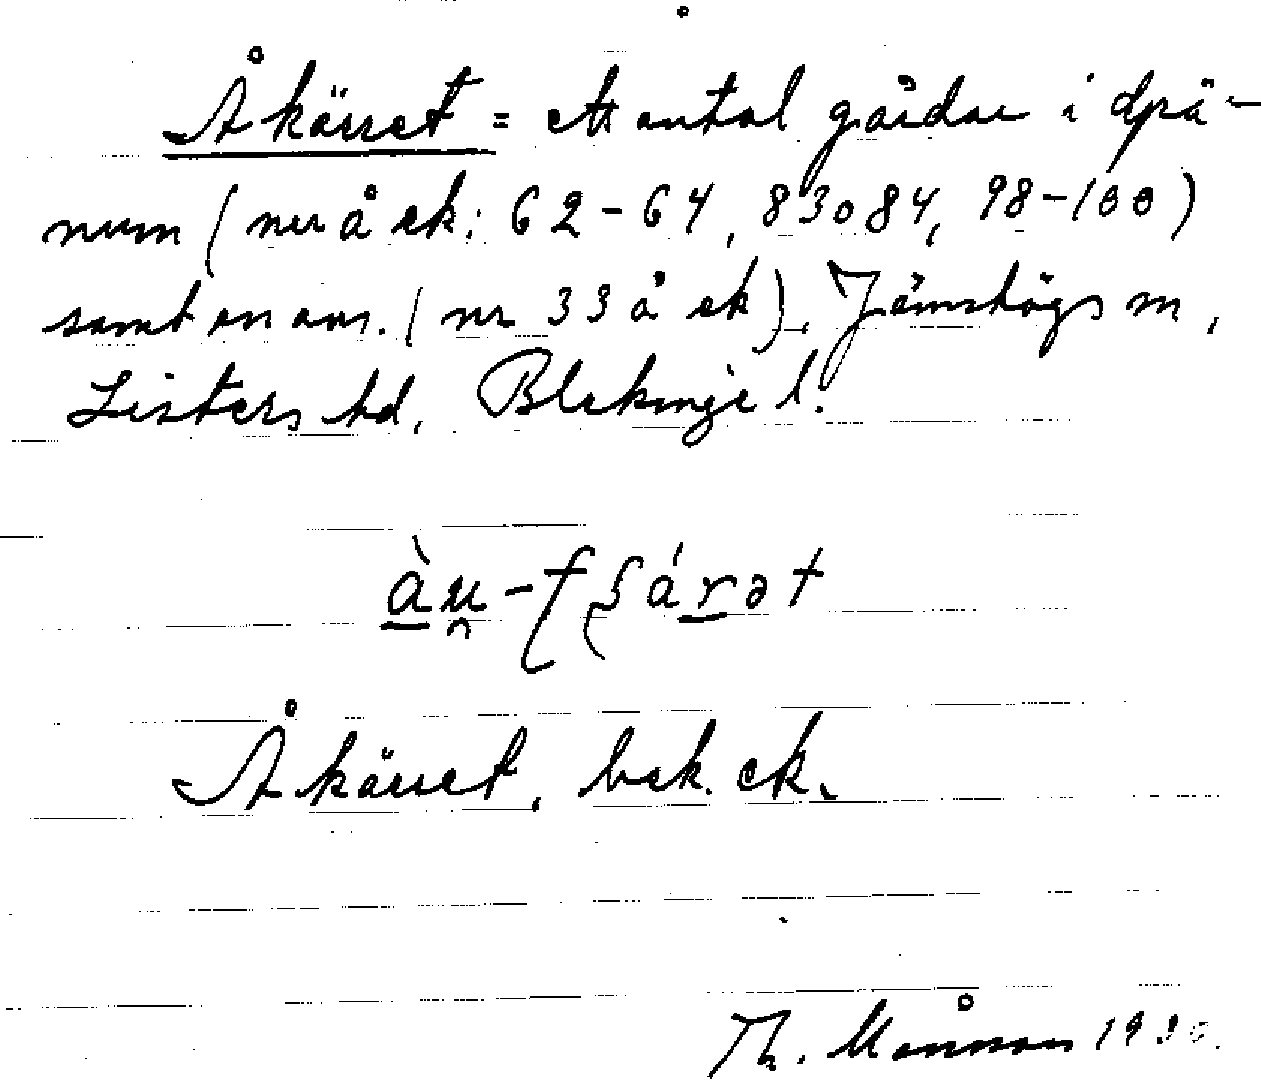 Åkärret = ett antal gårdar i Spä-
num (nr å ek: 62-64, 83 o 84, 98-100)
samt en anv. (nr 33 å ek), Jämshögs sn,
Listers hd, Blekinge l.
àu̯-tʃárət
Åkärret, bek. ek.
Th. Månsson